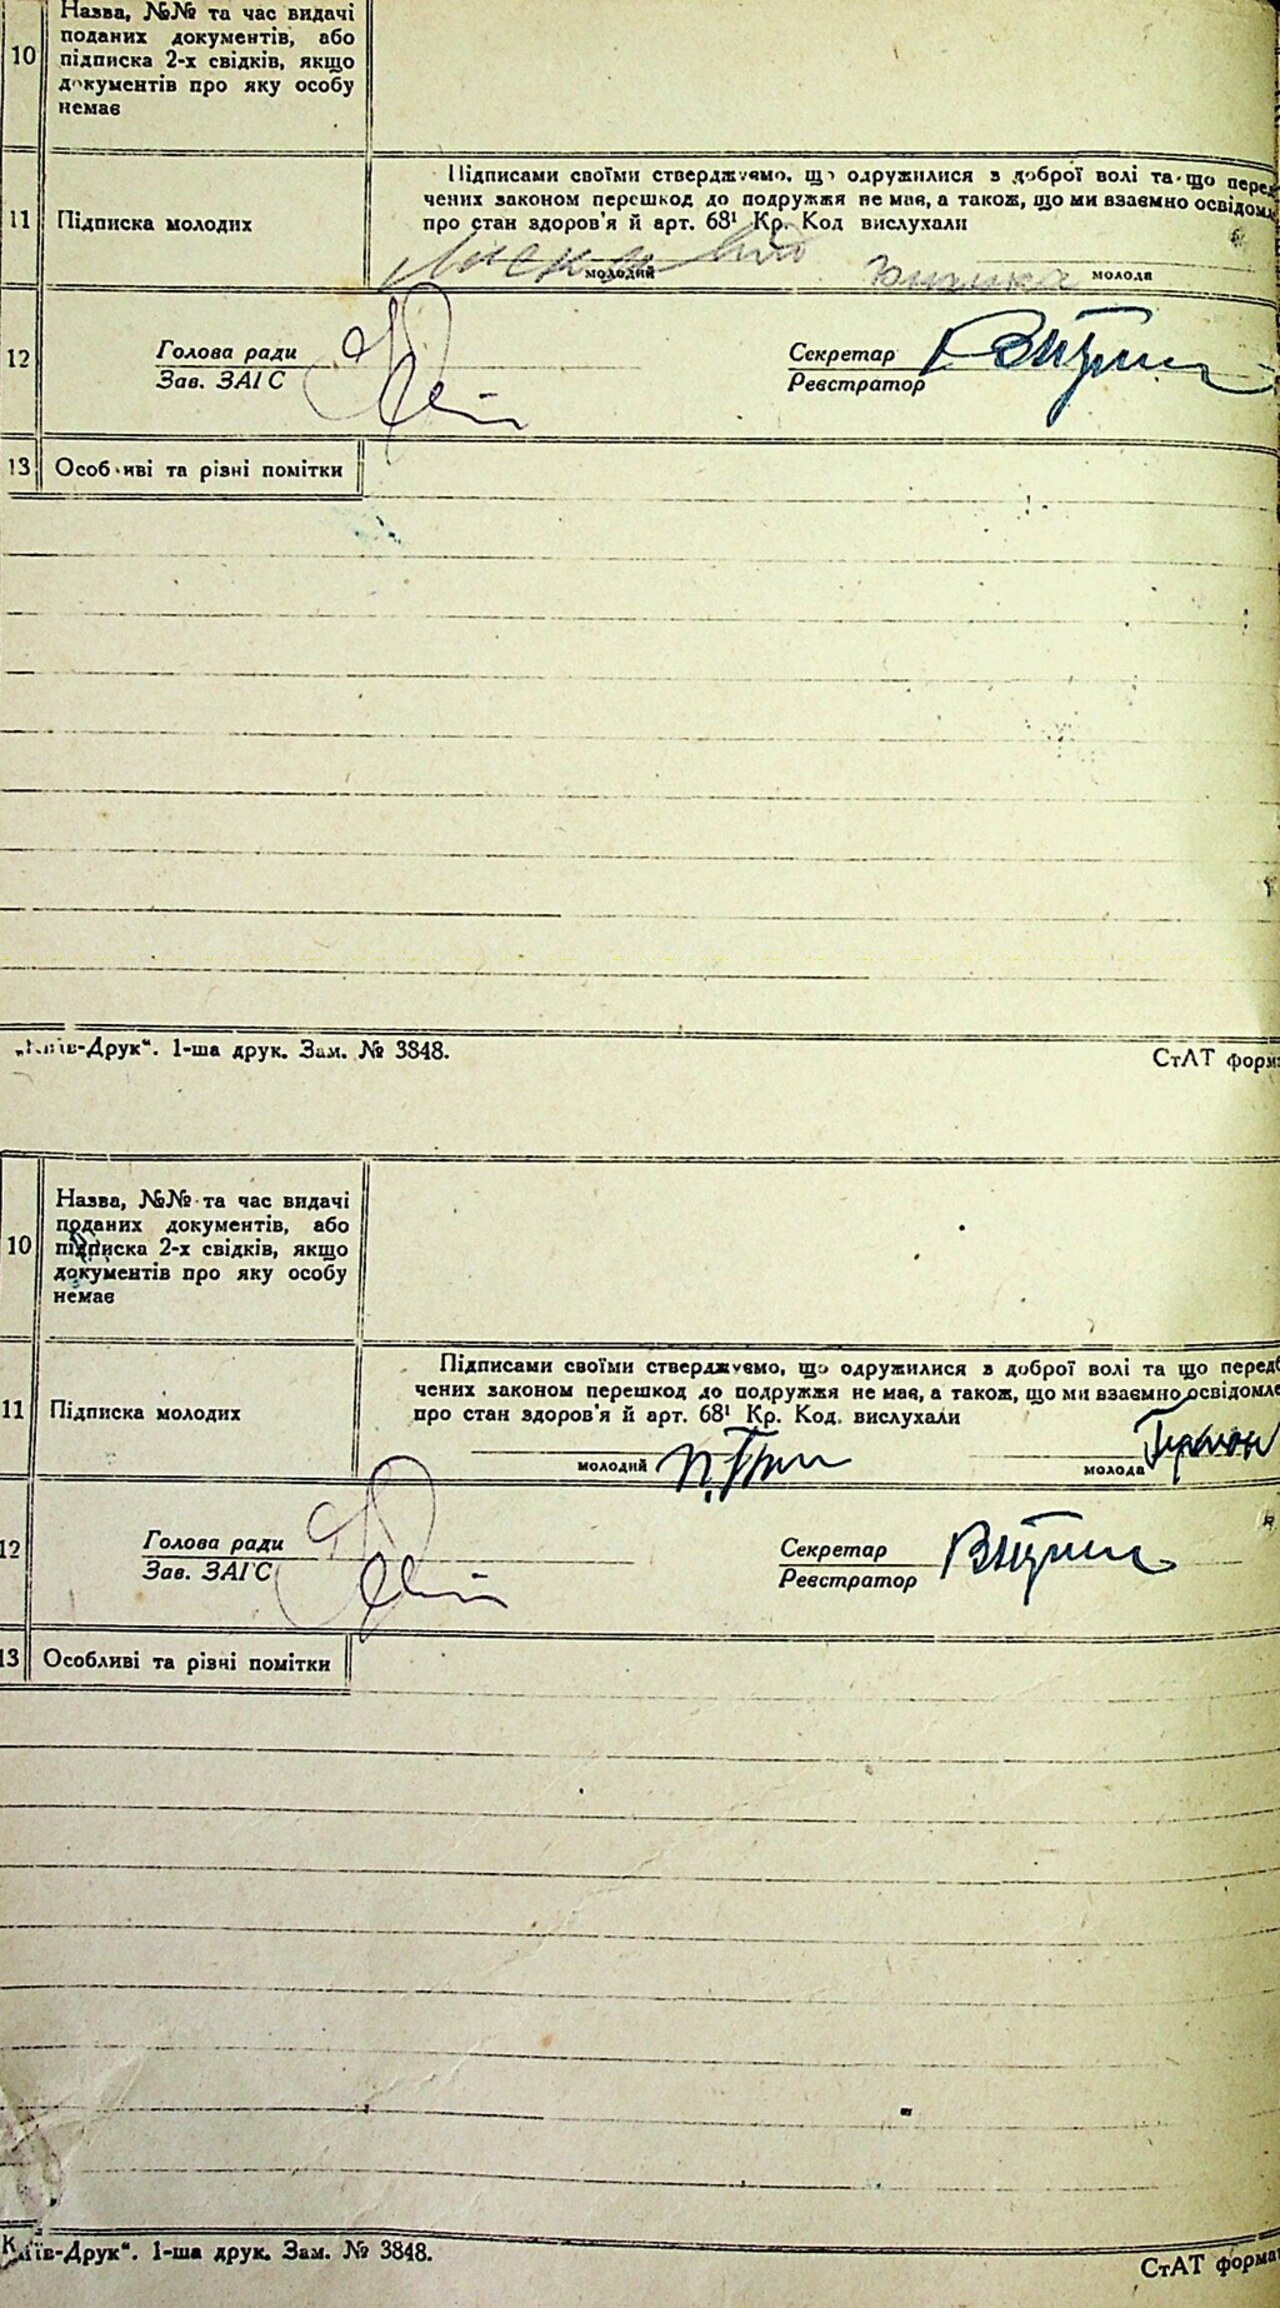 Назва, №№ та час видачі
10 поданих документів, або
підписка 2-х свідків, якщо
документів про яку особу
немає
Підписами своїми стверджуємо, що одружилися з доброї волі та що перед
чених законом перешкод до подружжя не має, а також, що ми взаємно освідомл
11 Підписка молодих
про стан здоров'я й арт. 68¹ Кр. Код вислухали
молодий молода
12 Голова ради Секретар
Зав. ЗАГС Реєстратор
13 Особливі та різні помітки
„Київ-Друк“. 1-ша друк. Зам. № 3848.
СтАТ форма
Назва, №№ та час видачі
поданих документів, або
10 підписка 2-х свідків, якщо
документів про яку особу
немає
Підписами своїми стверджуємо, що одружилися з доброї волі та що передб
чених законом перешкод до подружжя не має, а також, що ми взаємно освідомле
11 Підписка молодих про стан здоров'я й арт. 68¹ Кр. Код. вислухали
молодий молода
12 Голова ради Секретар
Зав. ЗАГС Реєстратор
13 Особливі та різні помітки
Київ-Друк“. 1-ша друк. Зам. № 3848.
СтАТ форма